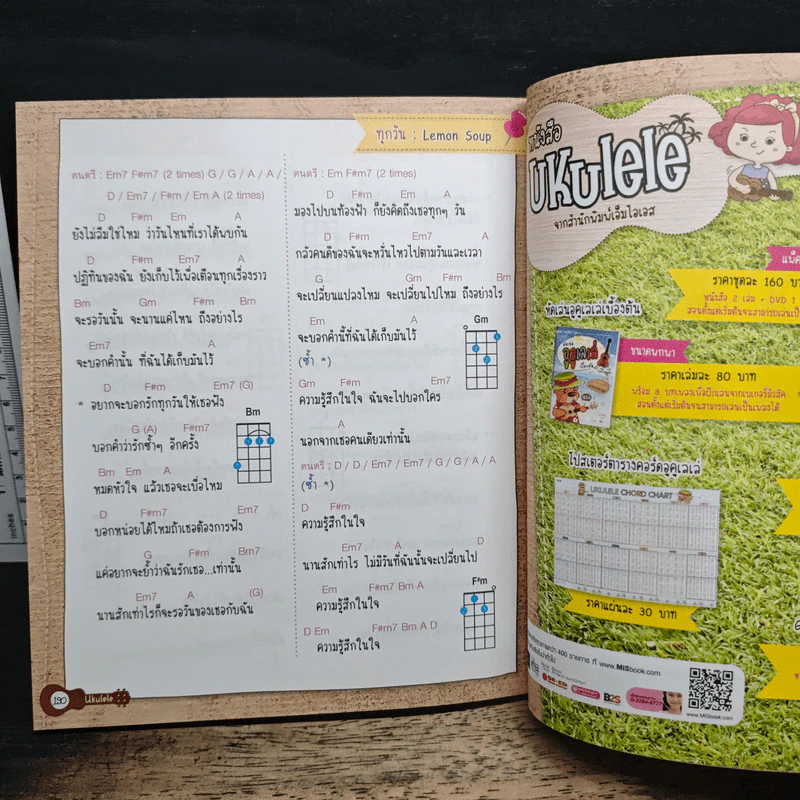 ทุกวัน : Lemon Soup
ดนตรี : Em7 F#m7 (2 times) G / G / A / A /
D / Em7 / F#m / Em A (2 times)
D F#m Em A
ยังไม่ลืมใช่ไหม ว่าวันไหนที่เราได้พบกัน
D F#m Em7 A
ปฏิทินของฉัน ยังเก็บไว้เพื่อเตือนทุกเรื่องราว
Bm Gm F#m Bm
จะรอวันนั้น จะนานแค่ไหน ถึงอย่างไร
Em7 A
จะบอกคำนั้น ที่ฉันได้เก็บมันไว้
D F#m Em7 (G)
* อยากจะบอกรักทุกวันให้เธอฟัง
G (A) F#m7
บอกคำว่ารักซ้ำๆ อีกครั้ง
Bm
Bm Em A
หมดหัวใจ แล้วเธอจะเบื่อไหม
D F#m
บอกหน่อยได้ไหมถ้าเธอต้องการฟัง
G F#m Bm7
แค่อยากจะย้ำว่าฉันรักเธอ...เท่านั้น
Em7 A (G)
นานสักเท่าไรก็จะรอวันของเธอกับฉัน
190 Ukulele
ดนตรี : Em F#m7 (2 times)
D F#m Em A
มองไปบนท้องฟ้า ก็ยังคิดถึงเธอทุกๆ วัน
D F#m Em7 A
กลัวคนดีของฉันจะหวั่นไหวไปตามวันและเวลา
G Gm F#m Bm
จะเปลี่ยนแปลงไหม จะเปลี่ยนไปไหม ถึงอย่างไร
Em A
จะบอกคำนี้ที่ฉันได้เก็บมันไว้
Gm
(ซ้ำ *)
Gm F#m Em
ความรู้สึกในใจ ฉันจะไปบอกใคร
A
นอกจากเธอคนเดียวเท่านั้น
ดนตรี : D / D / Em7 / Em7 / G / G / A / A
(ซ้ำ *)
D F#m
ความรู้สึกในใจ
Em7 A D
นานสักเท่าไร ไม่มีวันที่ฉันนั้นจะเปลี่ยนไป
Em F#m7 Bm A
ความรู้สึกในใจ
F#m
D Em F#m7 Bm A D
ความรู้สึกในใจ
หนังสือ
UKulele
จากสำนักพิมพ์เอ็มไอเอส
ราคาชุดละ 160
หนังสือ 2 เล่ม + DVD 1
หัดเล่นอูคูเลเล่เบื้องต้น
ขนาดพกพา
ราคาเล่มละ 80 บาท
โปสเตอร์ตารางคอร์ดอูคูเลเล่
UKULELE CHORD CHART
ราคาแผ่นละ 30 บาท
400 รายการ ที่ www.MISbook.com
B2S
www.MISbook.com
inches